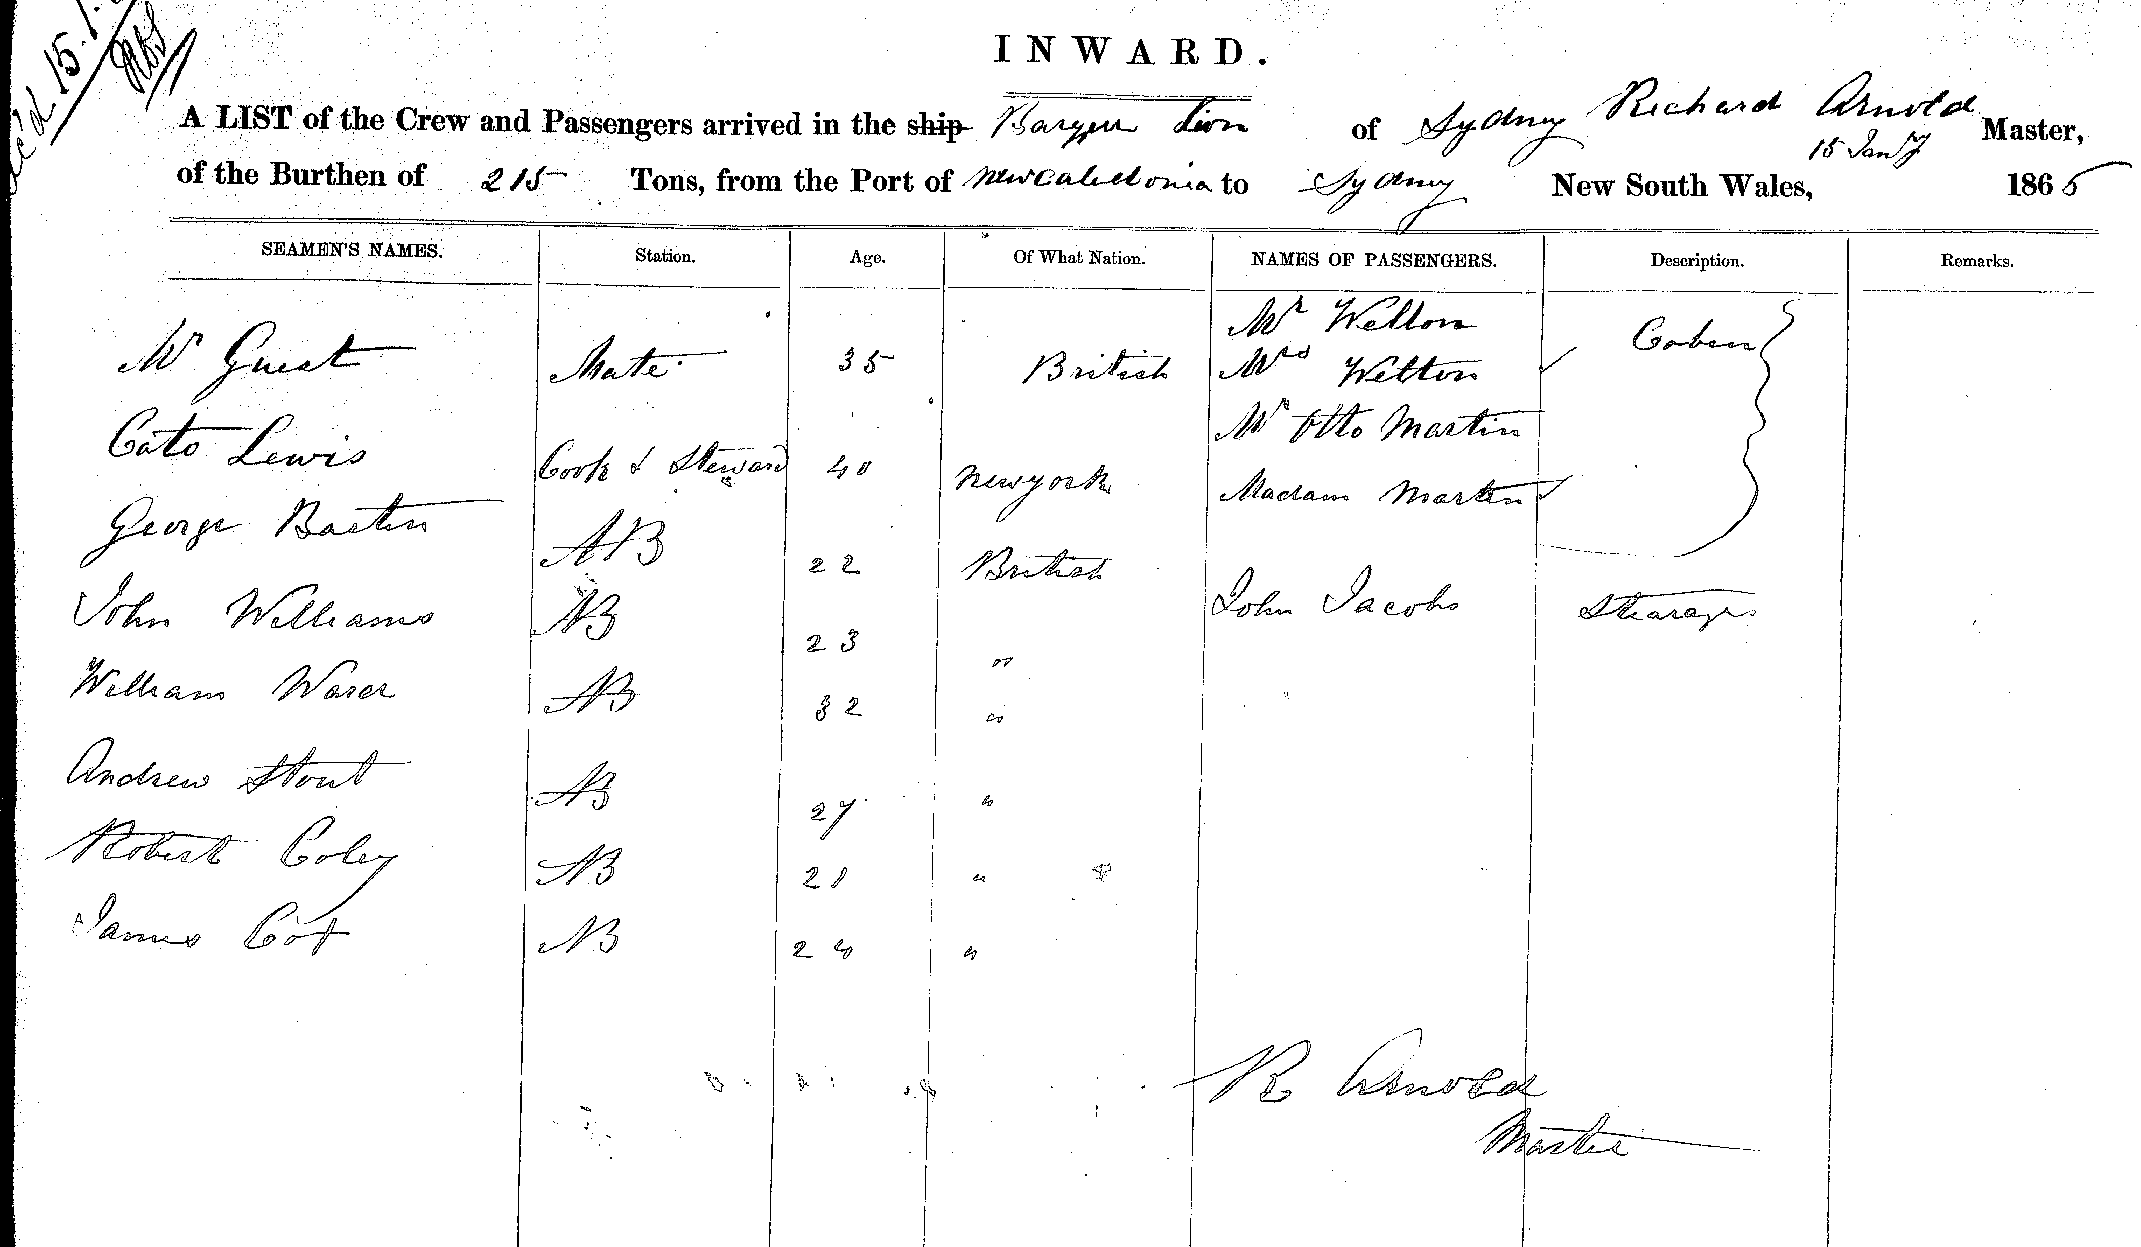 INWARD.
A LIST of the Crew and Passengers arrived in the ship Barque Lion of Sydney Richard Arnold Master,
of the Burthen of 215 Tons, from the Port of New Caledonia to Sydney New South Wales, 15 Jany 1865
SEAMEN'S NAMES. Station. Age. Of What Nation. NAMES OF PASSENGERS. Description. Remarks.
Mr Welton
Mr Guest Mate 35 British Mrs Welton Caben
Mr Otto Martin
Cato Lewis Cook & Steward 40 Newyork Madam Martin
George Bastin AB 22 British
John Williams AB 23 " John Jacobs Stearage
William AB 32 "
Andrew Stout AB 27 "
Robert Coley AB 21 "
James AB "
R Arnold
Master